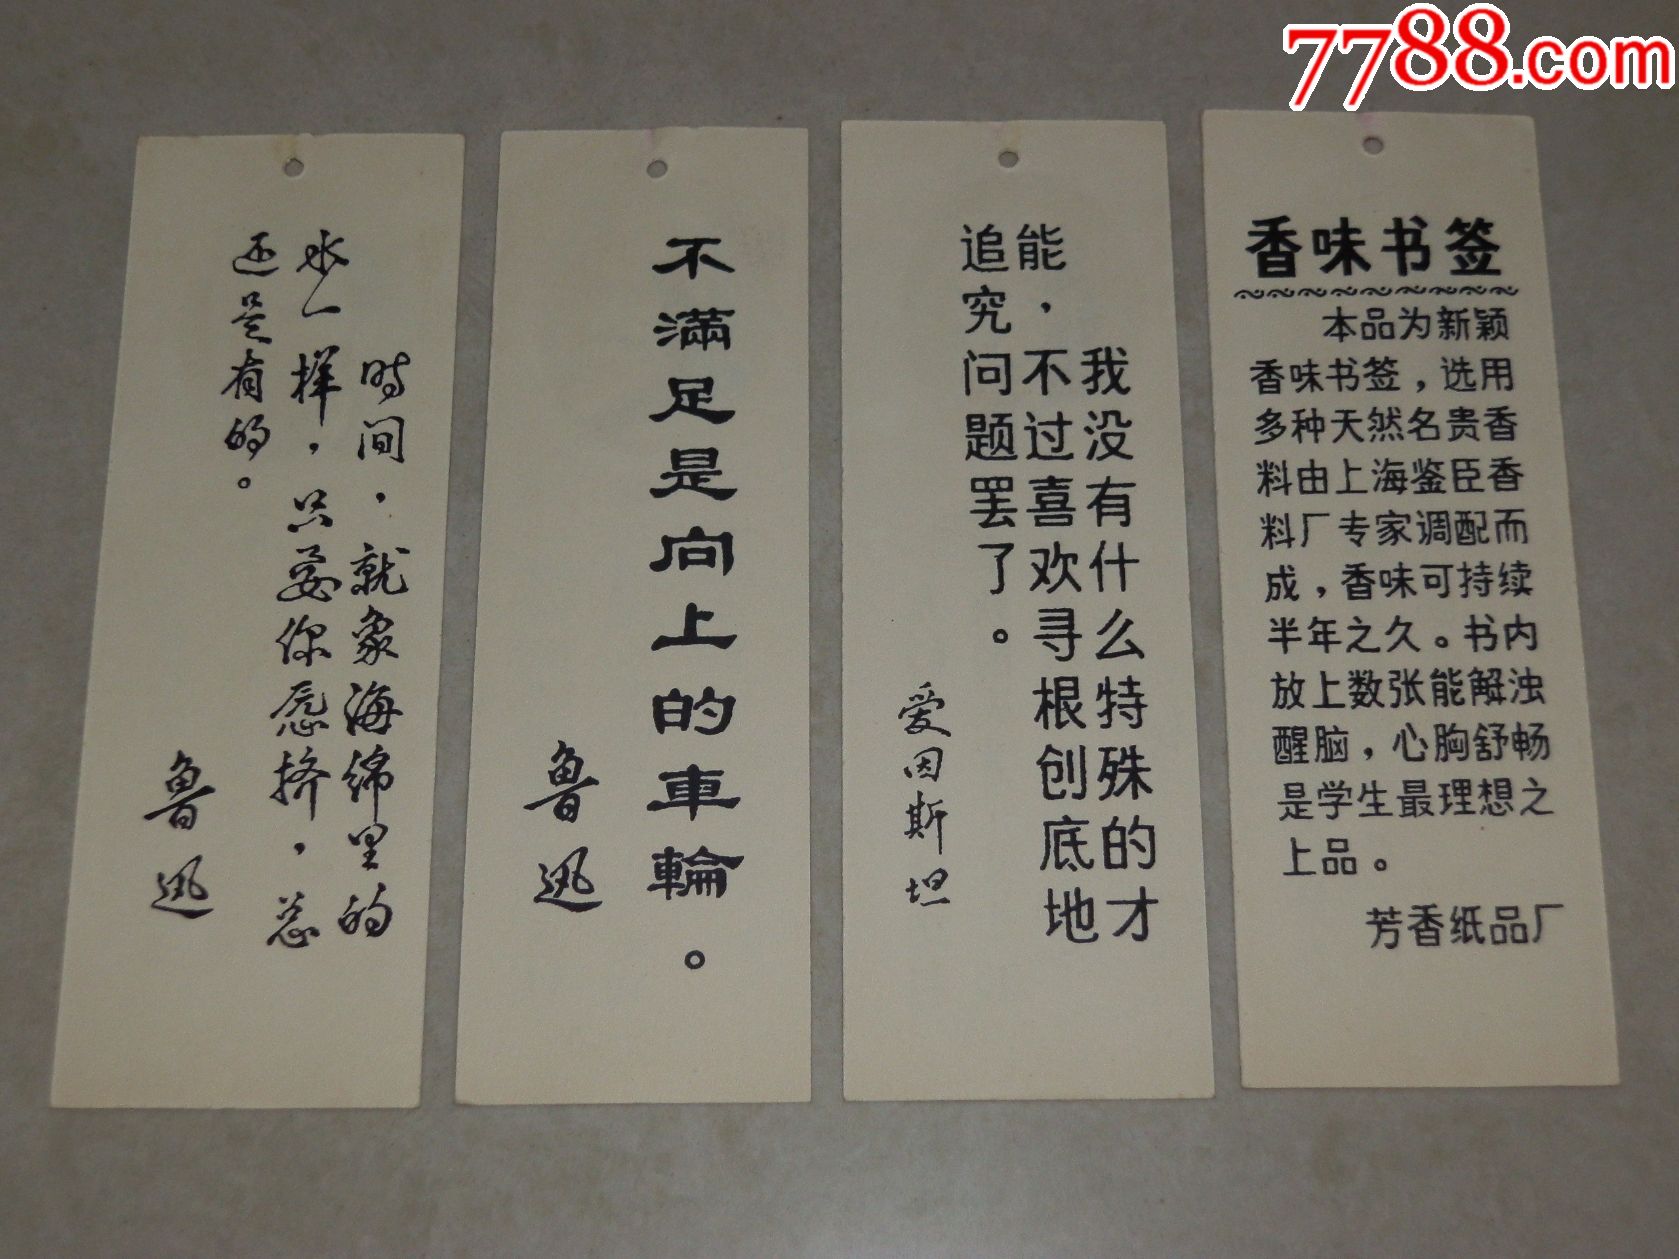 7788.com
时间，就象海绵里的
水一样，只要你愿挤，总
还是有的。
鲁迅
不滿足是向上的車輪。
鲁迅
我没有什么特殊的才
能，不过喜欢寻根创底地
追究问题罢了。
爱因斯坦
香味书签
本品为新颖
香味书签，选用
多种天然名贵香
料由上海鉴臣香
料厂专家调配而
成，香味可持续
半年之久。书内
放上数张能解浊
醒脑，心胸舒畅
是学生最理想之
上品。
芳香纸品厂